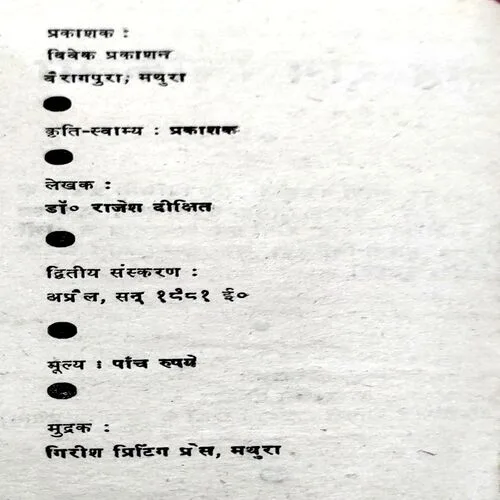 प्रकाशक :
विवेक प्रकाशन
बैरागपुरा, मथुरा
कृति-स्वाम्य : प्रकाशक
लेखक :
डॉ० राजेश दीक्षित
द्वितीय संस्करण :
अप्रैल, सन् १९८१ ई०
मूल्य : पाँच रुपये
मुद्रक :
गिरीश प्रिटिंग प्रेस, मथुरा